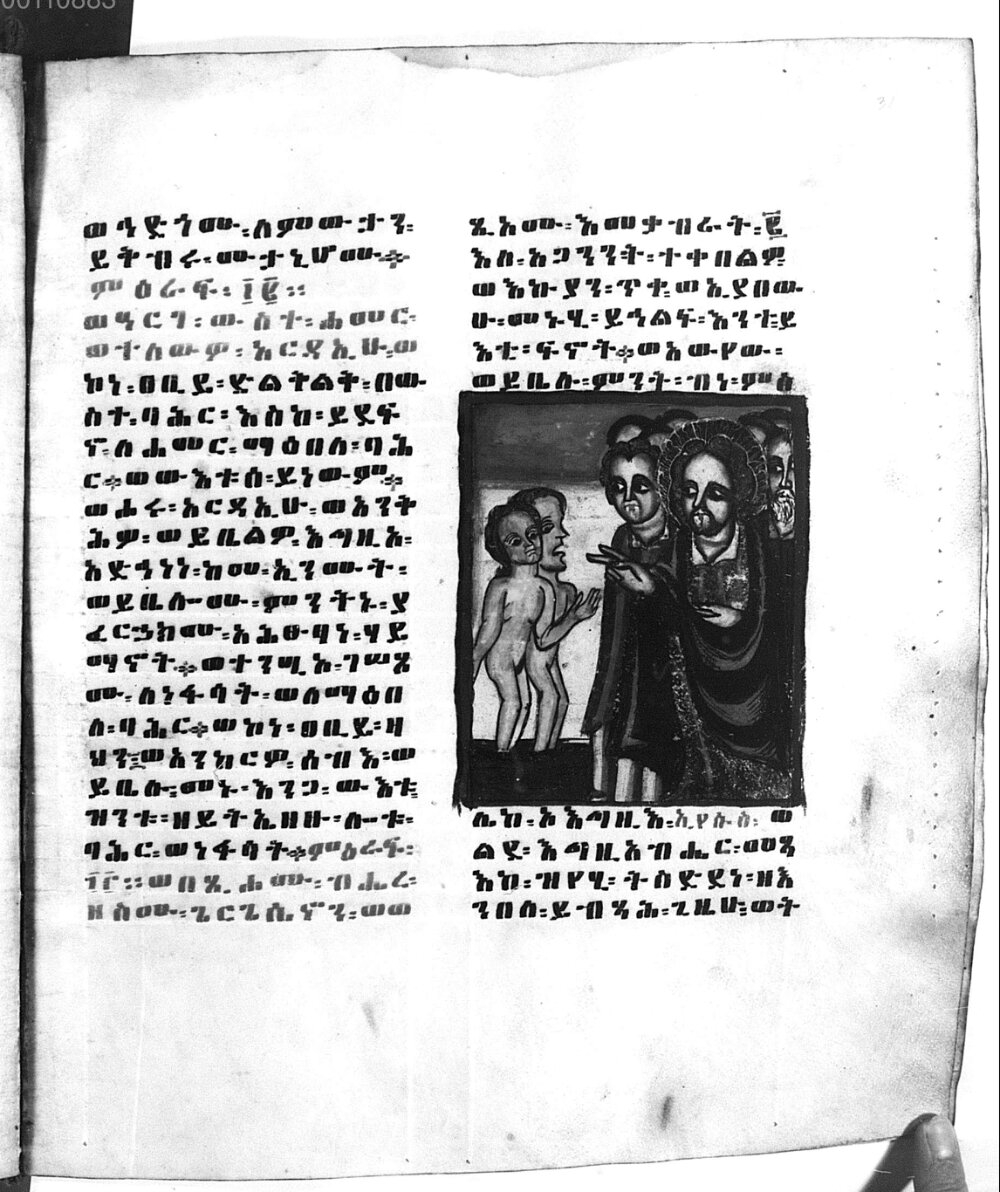 00110883
ወኅድጎሙ፡ለምውታን፡
ይትብሩ፡ሙታኒሆሙ።
ምዕራፍ፡፲፪።
ወዓርገ፡ውስተ፡ሐመር፡
ወተለውዎ፡አርዳኢሁ፡ወ
ኮነ፡ዐቢይ፡ድልቅልቅ፡በው
ስተ፡ባሕር፡እስከ፡ይደፍ
ኖ፡ለሐመር፡ማዕበለ፡ባሕ
ር።ወውእቱሰ፡ይነውም።
ወሖሩ፡አርዳኢሁ፡ወአንቅ
ሕዎ፡ወይቤልዎ፡እግዚኦ፡
አድኅነነ፡ከመ፡ኢንሙት፡
ወይቤሎሙ፡ምንትኑ፡ያ
ፈርኃክሙ፡አሕፀባነ፡ሃይ
ማኖት።ወተንሢኦ፡ገሠጾ
ሙ፡ለነፋሳት፡ወለማዕበ
ለ፡ባሕር።ወኮነ፡ዐቢይ፡ዛ
ኅን፡ወአንከርዎ፡ሰብእ፡ወ
ይቤሉ፡መኑ፡እንጋ፡ውእቱ
ዝንቱ፡ዘይትኤዘዙ፡ሎቱ፡
ባሕር፡ወነፋሳት።ምዕራፍ፡
፲፫።ወበጺሖሙ፡ብሔረ፡
ዘስሙ፡ጌርጌሴኖን፡ወወ
ጺኦሙ፡እመቃብራት፡፪
እለ፡አጋንንት፡ተቀበልዎ
ወእኩያን፡ጥቀ፡ወኢያበው
ሁ፡መኑሂ፡ይኅልፍ፡እንተይ
እቲ፡ፍኖት።ወአውየው፡
ወይቤሉ፡ምንት፡ብነ፡ምስ
ሌከ፡ኦእግዚእ፡ኢየሱስ፡ወ
ልደ፡እግዚአብሔር፡መጻ
እከ፡ዝየሂ፡ትስድደነ፡ዘእ
ንበለ፡ይብጻሕ፡ጊዜሁ፡ወት